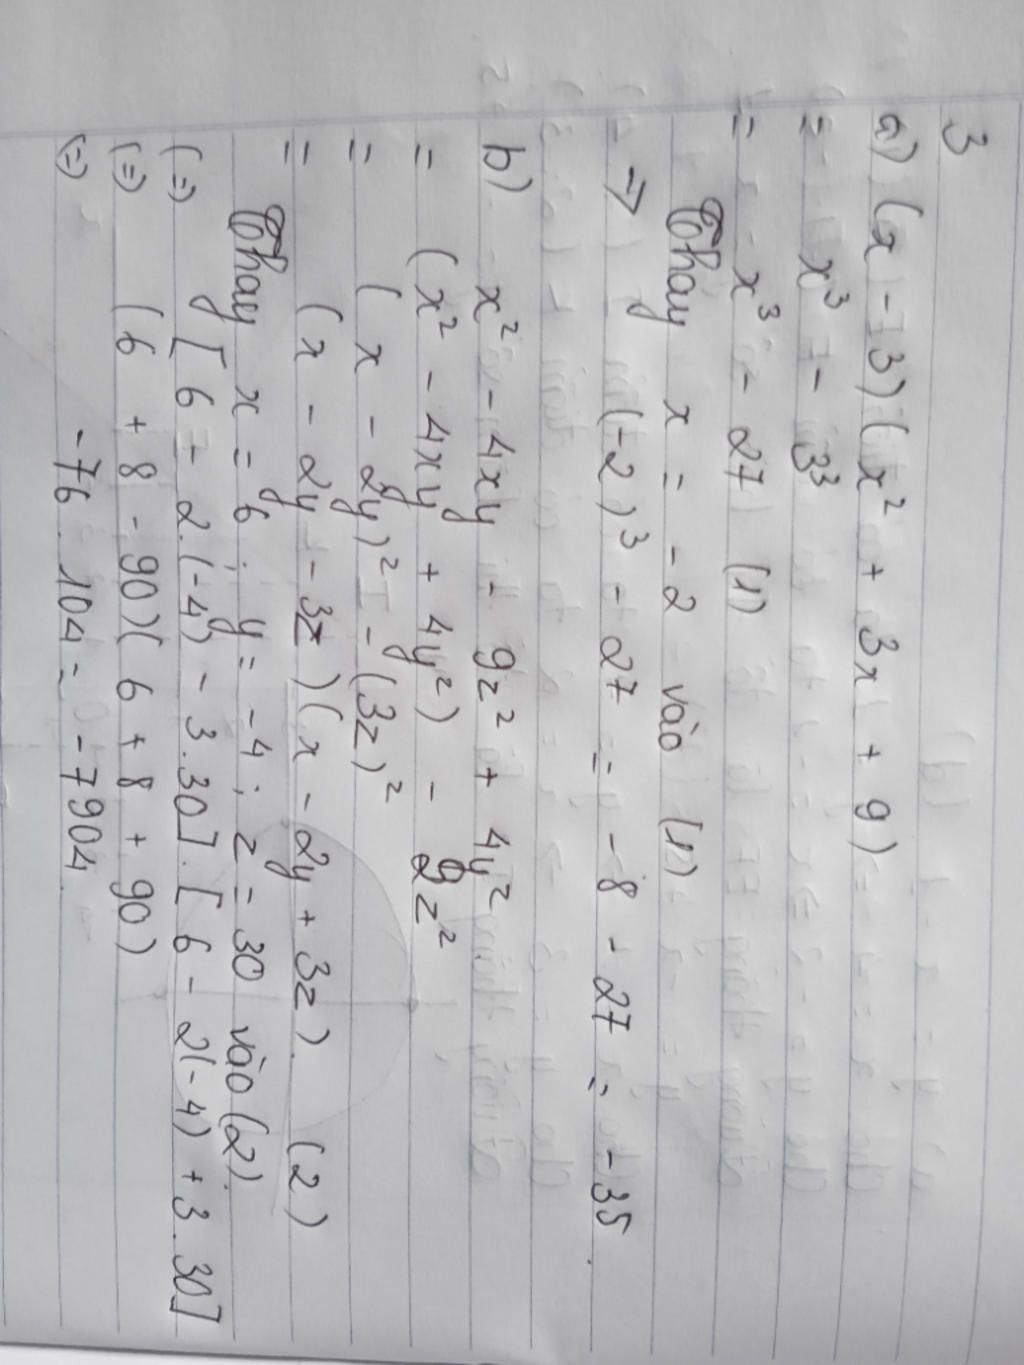 3
a) (x - 3)(x² + 3x + 9)
= x³ - 3³
= x³ - 27 (1)
Thay x = -2 vào (1)
=> (-2)³ - 27 = -8 - 27 = -35.
b) x² - 4xy - 9z² + 4y²
= (x² - 4xy + 4y²) - 9z²
= (x - 2y)² - (3z)²
= (x - 2y - 3z)(x - 2y + 3z). (2)
Thay x = 6; y = -4; z = 30 vào (2).
(=) [6 - 2.(-4) - 3.30].[6 - 2(-4) + 3.30]
(=) (6 + 8 - 90)(6 + 8 + 90)
(=) -76.104 = -7904.